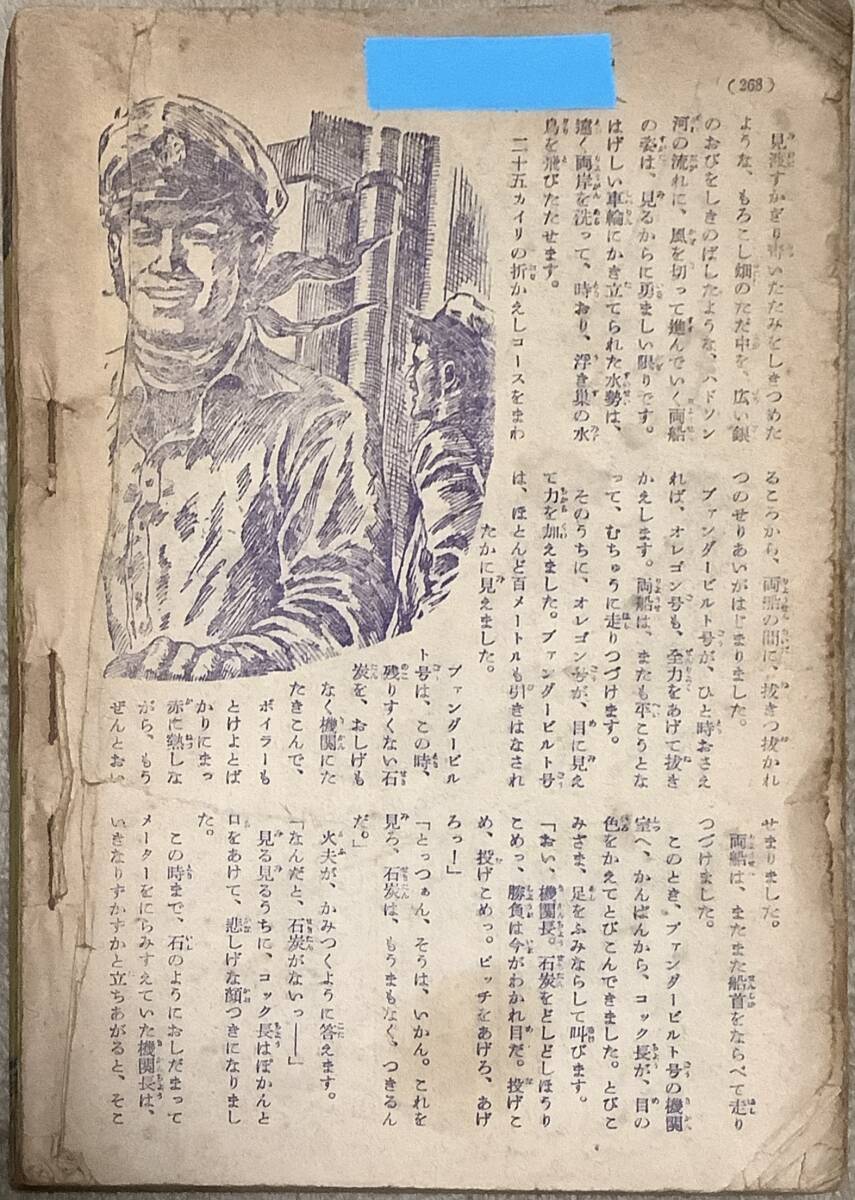 (268)
見渡すかぎり青いたたみをしきつめた
ような、もろこし畑のただ中を、広い銀
のおびをしきのばしたような、ハドソン
河の流れに、風を切って進んでいく両船
の姿は、見るからに勇ましい限りです。
はげしい車輪にかき立てられた水勢は、
遠く両岸を洗って、時おり、浮き巣の水
鳥を飛びたたせます。
二十五カイリの折かえしコースをまわ
るころから、両船の間に、抜きつ抜かれ
つのせりあいがはじまりました。
ブァンダービルト号が、ひと時おさえ
れば、オレゴン号も、全力をあげて抜き
かえします。両船は、またも平こうとな
って、むちゅうに走りつづけます。
そのうちに、オレゴン号が、目に見え
て力を加えました。ブァンダービルト号
は、ほとんど百メートルも引きはなされ
たかに見えました。
ブァンダービル
ト号は、この時、
残りすくない石
炭を、おしげも
なく機関にた
たきこんで、
ボイラーも
とけよとば
かりにまっ
赤に熱しな
がら、もう
ぜんとおい
せまりました。
両船は、またまた船首をならべて走り
つづけました。
このとき、ブァンダービルト号の機関
室へ、かんぱんから、コック長が、目の
色をかえてとびこんできました。とびこ
みさま、足をふみならして叫びます。
「おい、機関長。石炭をどしどしほうり
こめっ、勝負は今がわかれ目だ。投げこ
め、投げこめっ。ピッチをあげろ、あげ
ろっ！」
「とっつぁん、そうは、いかん。これを
見ろ、石炭は、もうまもなく、つきるん
だ。」
火夫が、かみつくように答えます。
「なんだと、石炭がないっ――」
見る見るうちに、コック長はぽかんと
口をあけて、悲しげな顔つきになりまし
た。
この時まで、石のようにおしだまって
メーターをにらみすえていた機関長は、
いきなりずかずかと立ちあがると、そこ